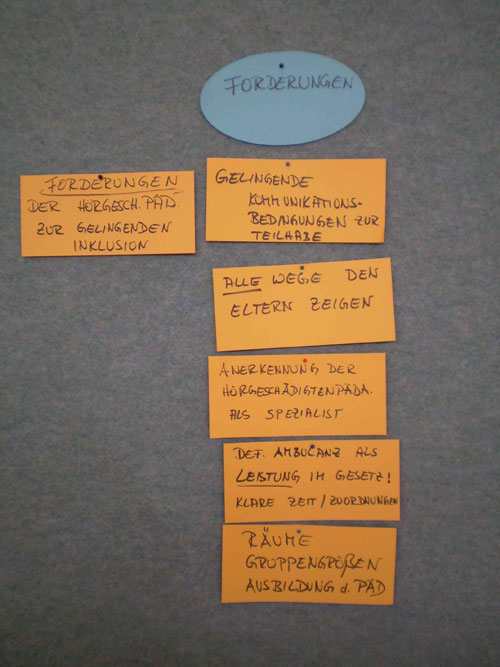 FORDERUNGEN
FORDERUNGEN
DER HÖRGESCH. PÄD.
ZUR GELINGENDEN
INKLUSION
GELINGENDE
KOMMUNIKATIONS-
BEDINGUNGEN ZUR
TEILHABE
ALLE WEGE DEN
ELTERN ZEIGEN
ANERKENNUNG DER
HÖRGESCHÄDIGTENPÄDA.
ALS SPEZIALIST
DEF. AMBULANZ ALS
LEISTUNG IM GESETZ!
KLARE ZEIT/ZUORDNUNGEN
RÄUME
GRUPPENGRÖßEN
AUSBILDUNG d. PÄD